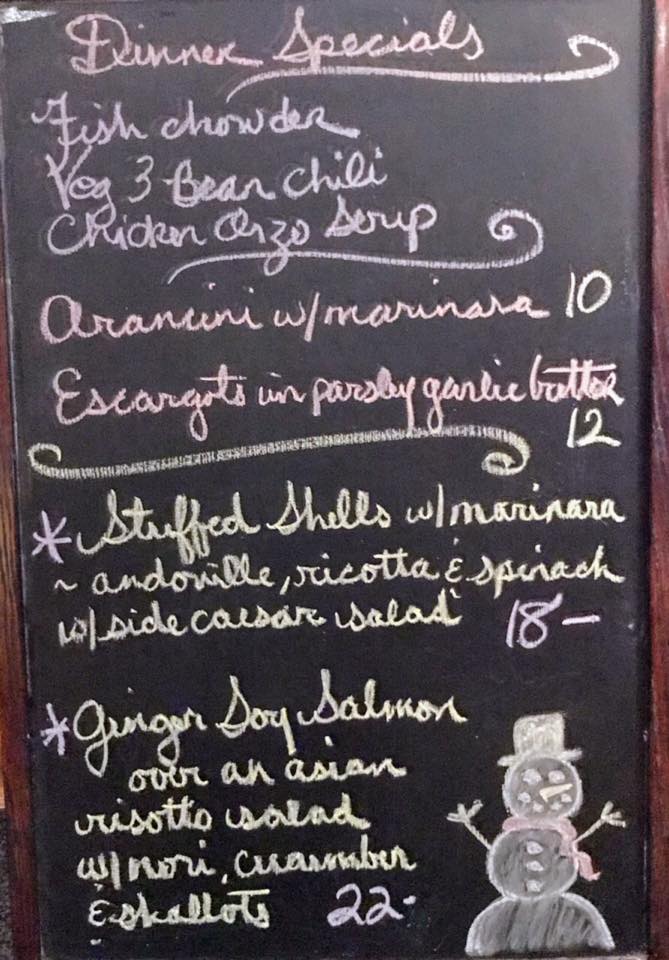 Dinner Specials
Fish chowder
Veg 3 Bean Chili
Chicken Orzo Soup
Arancini w/marinara 10
Escargots in parsley garlic butter
12
* Stuffed Shells w/marinara
~ andouille, ricotta & spinach
w/side caesar salad 18-
* Ginger Soy Salmon
over an asian
risotto salad
w/nori, cucumber
& shallots 22-